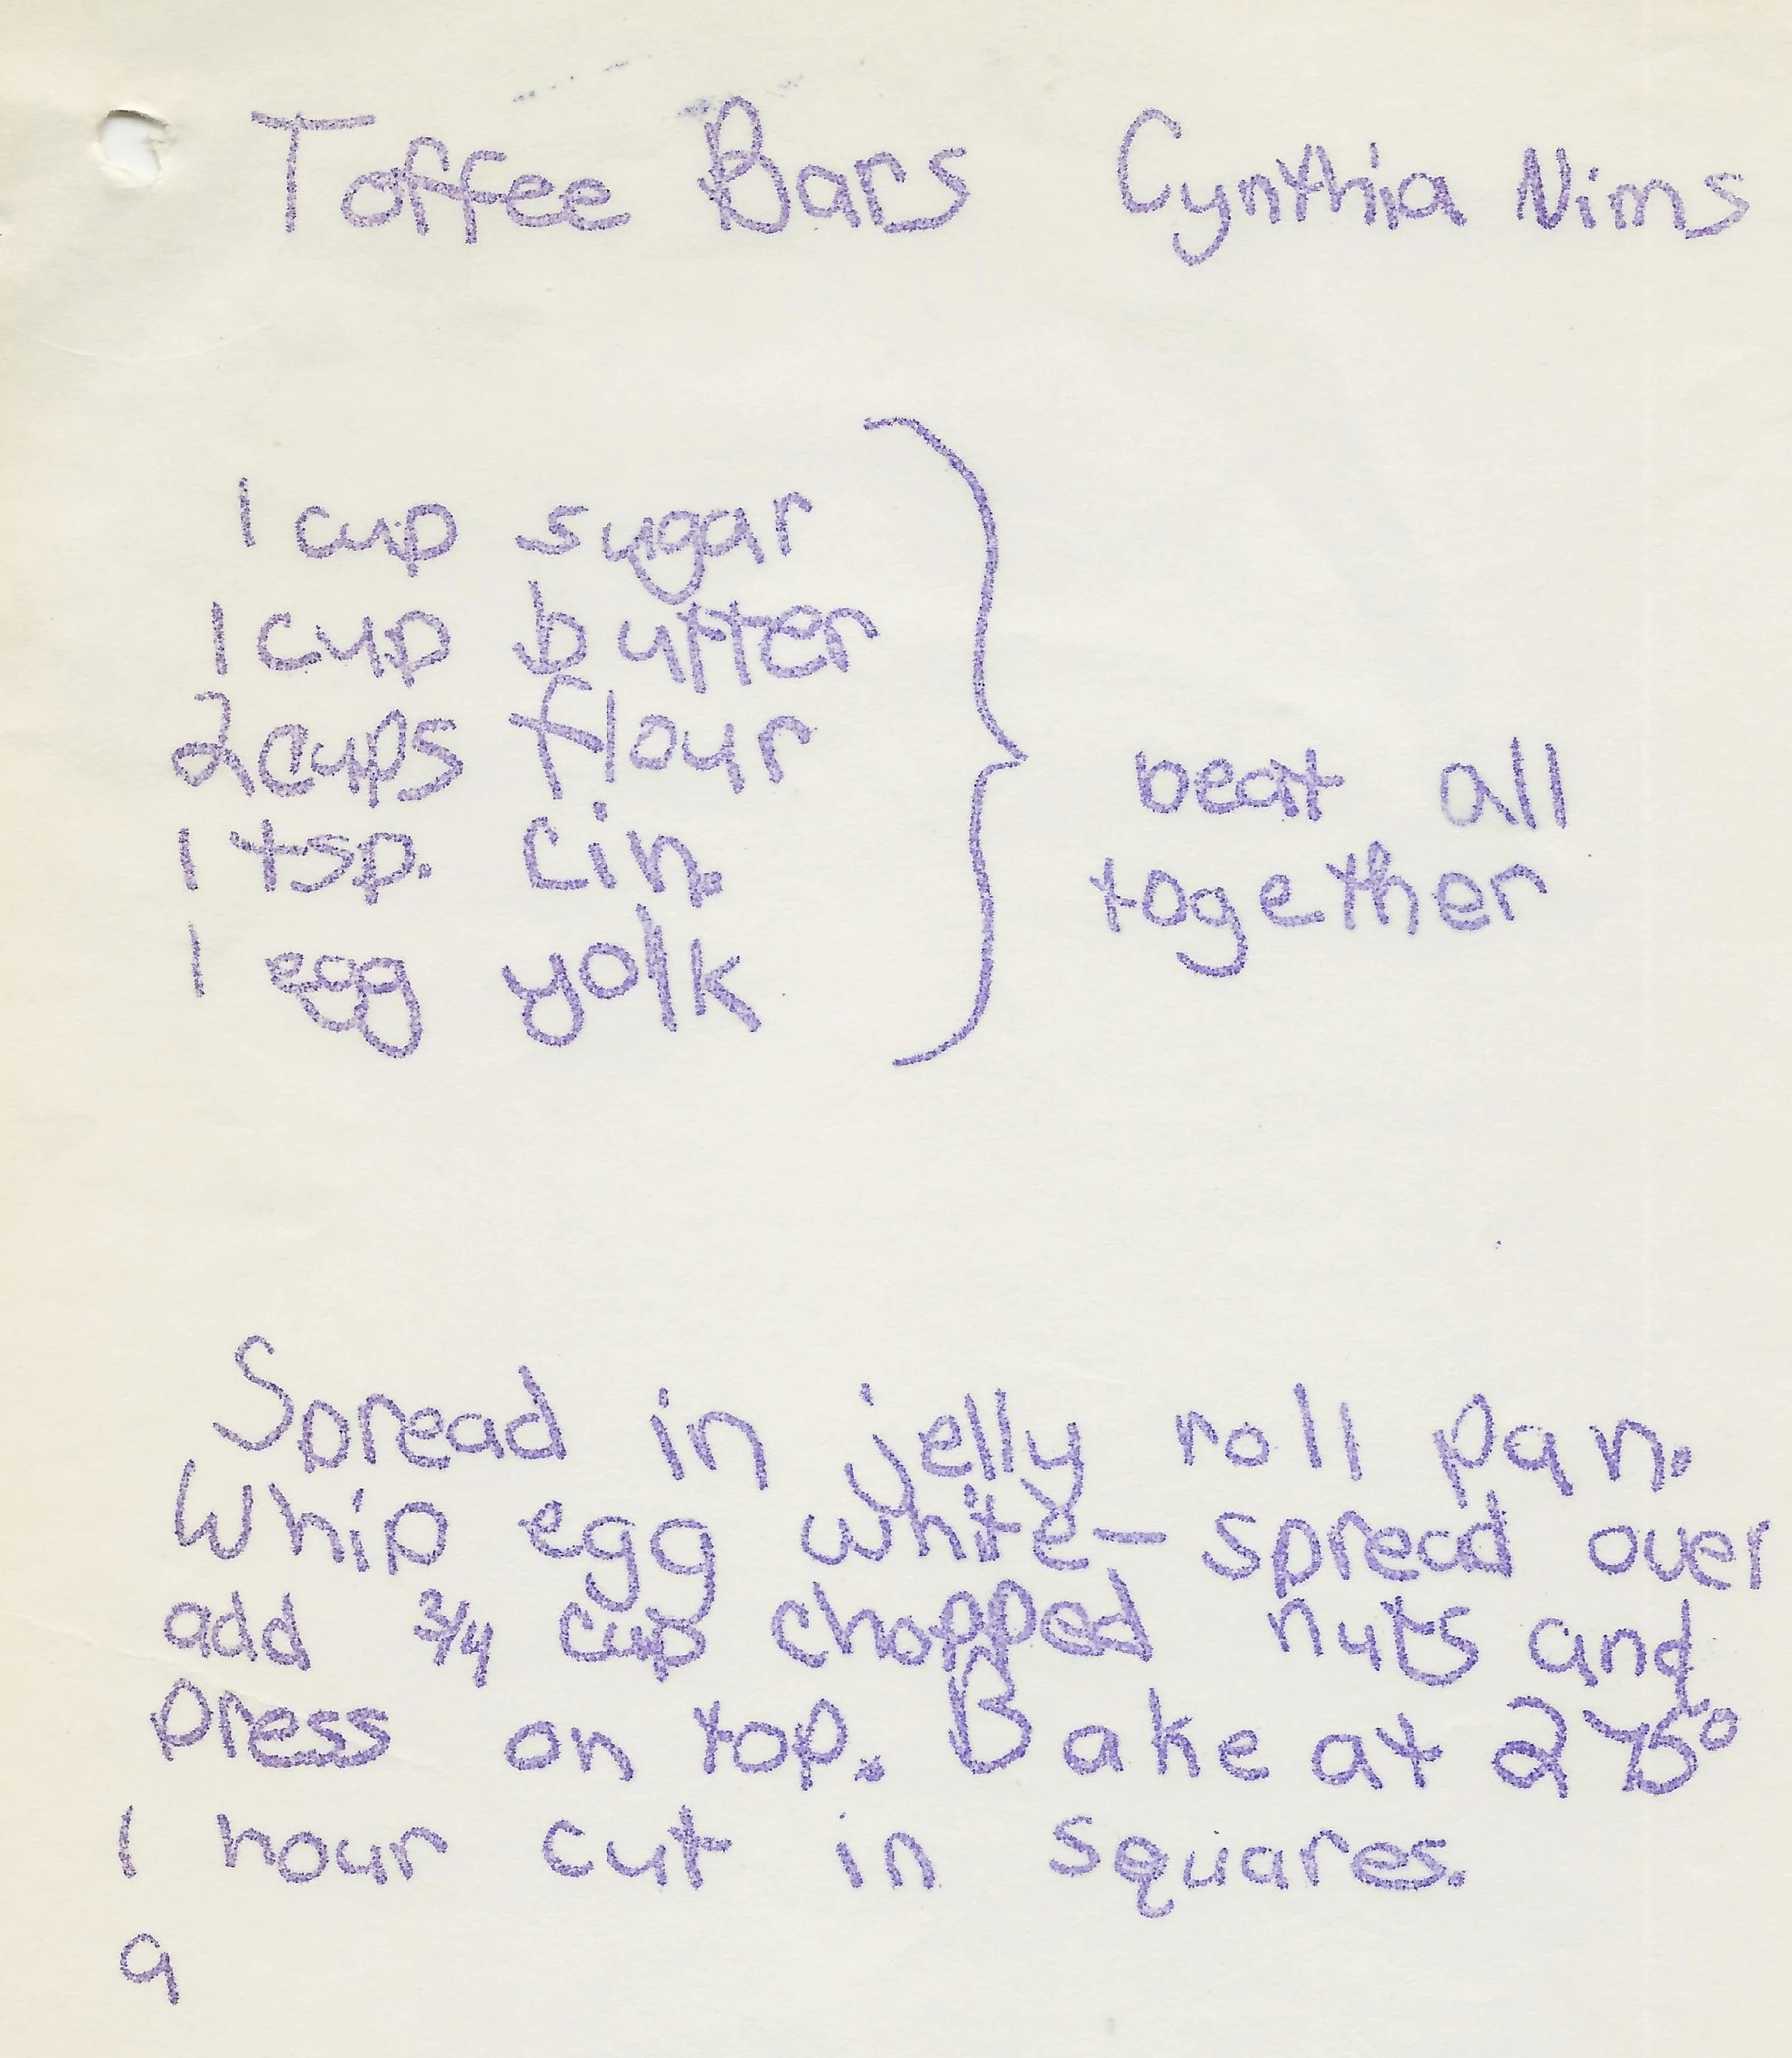 Toffee Bars Cynthia Nims
1 cup sugar
1 cup butter
2 cups flour
1 tsp. cin.
1 egg yolk
beat all
together
Spread in jelly roll pan.
Whip egg white - spread over
add 3/4 cup chopped nuts and
press on top. Bake at 275°
1 hour cut in squares.
9